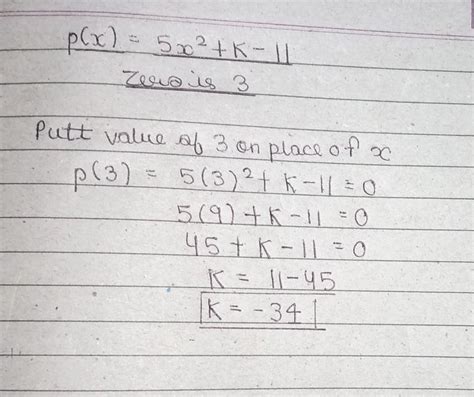 p(x) = 5x² + K - 11
Zero is 3
Putt value of 3 on place of x
p(3) = 5(3)² + K - 11 = 0
5(9) + K - 11 = 0
45 + K - 11 = 0
K = 11 - 45
K = -34